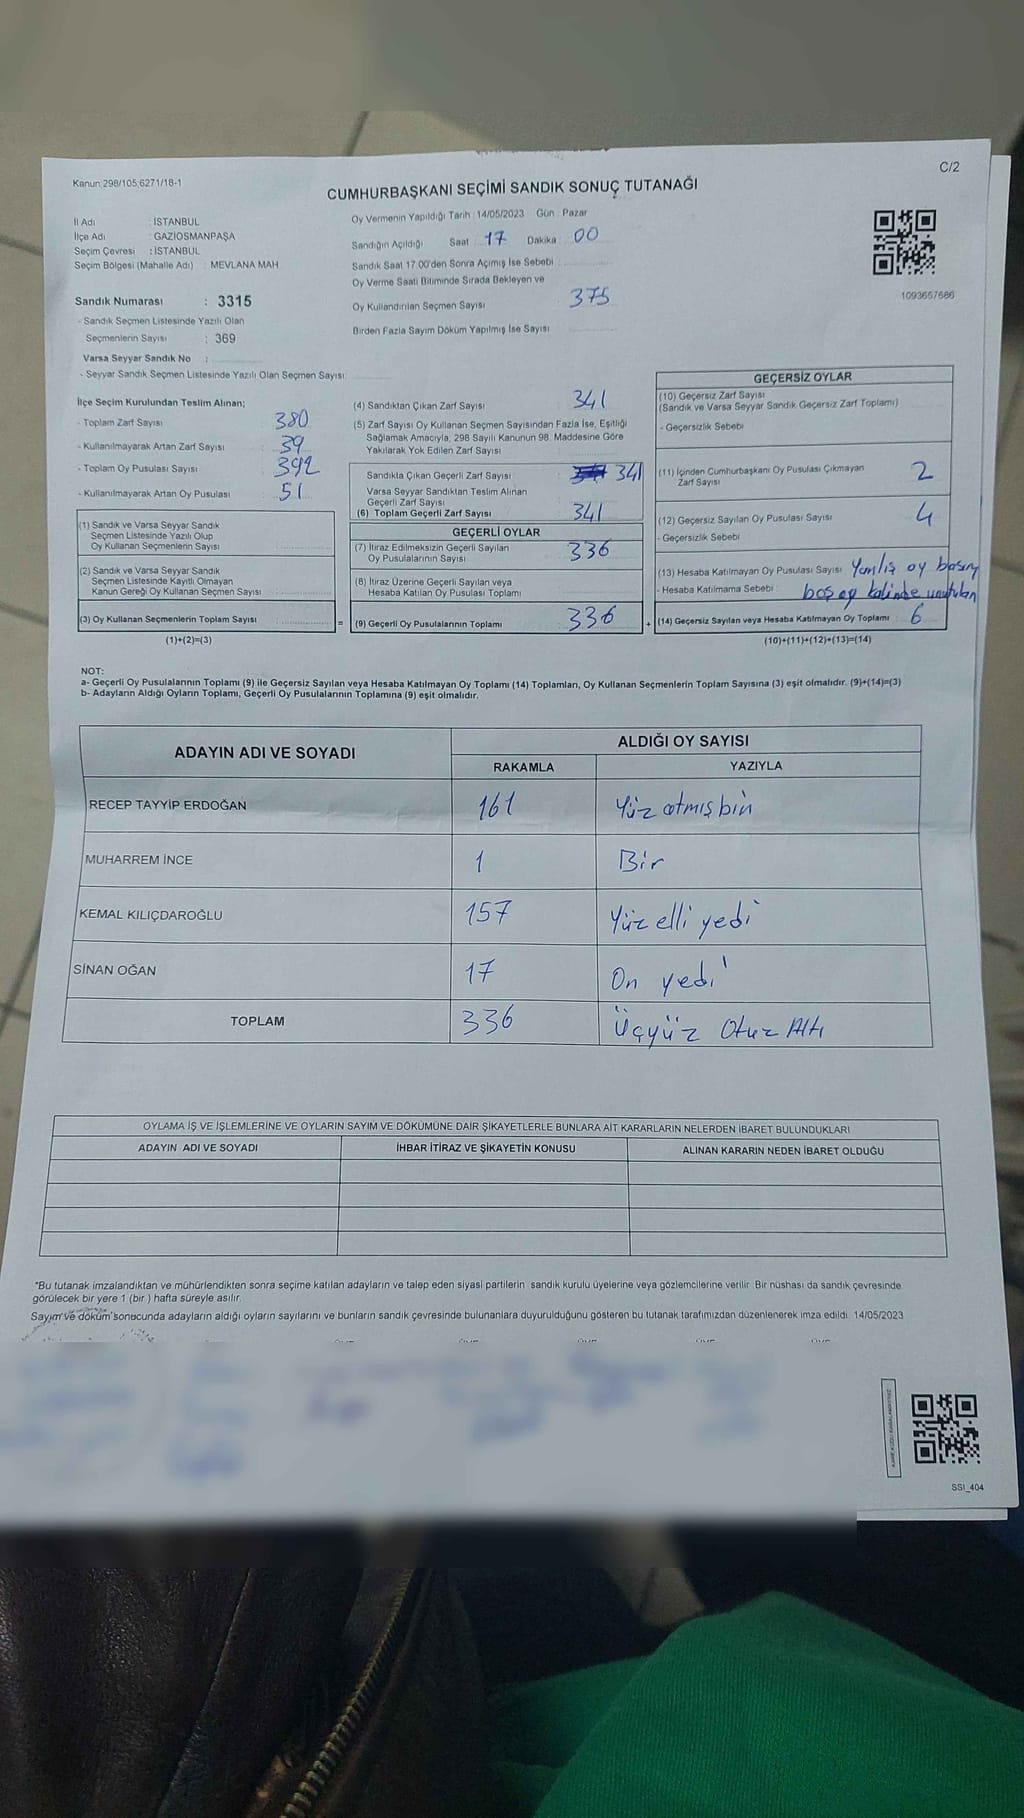 Kanun:298/105;6271/18-1
C/2
CUMHURBAŞKANI SEÇİMİ SANDIK SONUÇ TUTANAĞI
İl Adı : İSTANBUL
İlçe Adı : GAZİOSMANPAŞA
Seçim Çevresi : İSTANBUL
Seçim Bölgesi (Mahalle Adı) : MEVLANA MAH
Sandık Numarası : 3315
- Sandık Seçmen Listesinde Yazılı Olan
Seçmenlerin Sayısı : 369
Varsa Seyyar Sandık No :
- Seyyar Sandık Seçmen Listesinde Yazılı Olan Seçmen Sayısı:
Oy Vermenin Yapıldığı Tarih : 14/05/2023 Gün : Pazar
Sandığın Açıldığı Saat 17 Dakika 00
Sandık Saat 17:00'den Sonra Açımış İse Sebebi
Oy Verme Saati Bitiminde Sırada Bekleyen ve
Oy Kullandırılan Seçmen Sayısı 375
Birden Fazla Sayım Döküm Yapılmış İse Sayısı
1093657686
İlçe Seçim Kurulundan Teslim Alınan;
- Toplam Zarf Sayısı 380
- Kullanılmayarak Artan Zarf Sayısı : 39
- Toplam Oy Pusulası Sayısı 392
- Kullanılmayarak Artan Oy Pusulası : 51
(1) Sandık ve Varsa Seyyar Sandık
Seçmen Listesinde Yazılı Olup
Oy Kullanan Seçmenlerin Sayısı
(2) Sandık ve Varsa Seyyar Sandık
Seçmen Listesinde Kayıtlı Olmayan
Kanun Gereği Oy Kullanan Seçmen Sayısı :
(3) Oy Kullanan Seçmenlerin Toplam Sayısı :
(1)+(2)=(3)
=
(4) Sandıktan Çıkan Zarf Sayısı 341
(5) Zarf Sayısı Oy Kullanan Seçmen Sayısından Fazla İse, Eşitliği
Sağlamak Amacıyla, 298 Sayılı Kanunun 98. Maddesine Göre
Yakılarak Yok Edilen Zarf Sayısı
Sandıkla Çıkan Geçerli Zarf Sayısı : 341
Varsa Seyyar Sandıktan Teslim Alınan
Geçerli Zarf Sayısı
(6) Toplam Geçerli Zarf Sayısı : 341
GEÇERLİ OYLAR
(7) İtiraz Edilmeksizin Geçerli Sayılan
Oy Pusulalarının Sayısı : 336
(8) İtiraz Üzerine Geçerli Sayılan veya
Hesaba Katılan Oy Pusulalarının Toplamı
(9) Geçerli Oy Pusulalarının Toplamı 336
+
GEÇERSİZ OYLAR
(10) Geçersiz Zarf Sayısı
(Sandık ve Varsa Seyyar Sandık Geçersiz Zarf Toplamı)
- Geçersizlik Sebebi
(11) İçinden Cumhurbaşkanı Oy Pusulası Çıkmayan
Zarf Sayısı 2
(12) Geçersiz Sayılan Oy Pusulası Sayısı 4
- Geçersizlik Sebebi
(13) Hesaba Katılmayan Oy Pusulası Sayısı Yanlış oy basımı
- Hesaba Katılmama Sebebi : boş oy kabinde unutulan
(14) Geçersiz Sayılan veya Hesaba Katılmayan Oy Toplamı : 6
(10)+(11)+(12)+(13)=(14)
NOT:
a- Geçerli Oy Pusulalarının Toplamı (9) ile Geçersiz Sayılan veya Hesaba Katılmayan Oy Toplamı (14) Toplamları, Oy Kullanan Seçmenlerin Toplam Sayısına (3) eşit olmalıdır. (9)+(14)=(3)
b- Adayların Aldığı Oyların Toplamı, Geçerli Oy Pusulalarının Toplamına (9) eşit olmalıdır.
ADAYIN ADI VE SOYADI
ALDIĞI OY SAYISI
RAKAMLA YAZIYLA
RECEP TAYYİP ERDOĞAN 161 Yüz atmış bir
MUHARREM İNCE 1 Bir
KEMAL KILIÇDAROĞLU 157 Yüz elli yedi
SİNAN OĞAN 17 On yedi
TOPLAM 336 Üçyüz Otuz Altı
OYLAMA İŞ VE İŞLEMLERİNE VE OYLARIN SAYIM VE DÖKÜMÜNE DAİR ŞİKAYETLERLE BUNLARA AİT KARARLARIN NELERDEN İBARET BULUNDUKLARI
ADAYIN ADI VE SOYADI İHBAR İTİRAZ VE ŞİKAYETİN KONUSU ALINAN KARARIN NEDEN İBARET OLDUĞU
*Bu tutanak imzalandıktan ve mühürlendikten sonra seçime katılan adayların ve talep eden siyasi partilerin sandık kurulu üyelerine veya gözlemcilerine verilir. Bir nüshası da sandık çevresinde
görülecek bir yere 1 (bir ) hafta süreyle asılır.
Sayım ve döküm sonucunda adayların aldığı oyların sayılarını ve bunların sandık çevresinde bulunanlara duyurulduğunu gösteren bu tutanak tarafımızdan düzenlenerek imza edildi. 14/05/2023
SSI_404